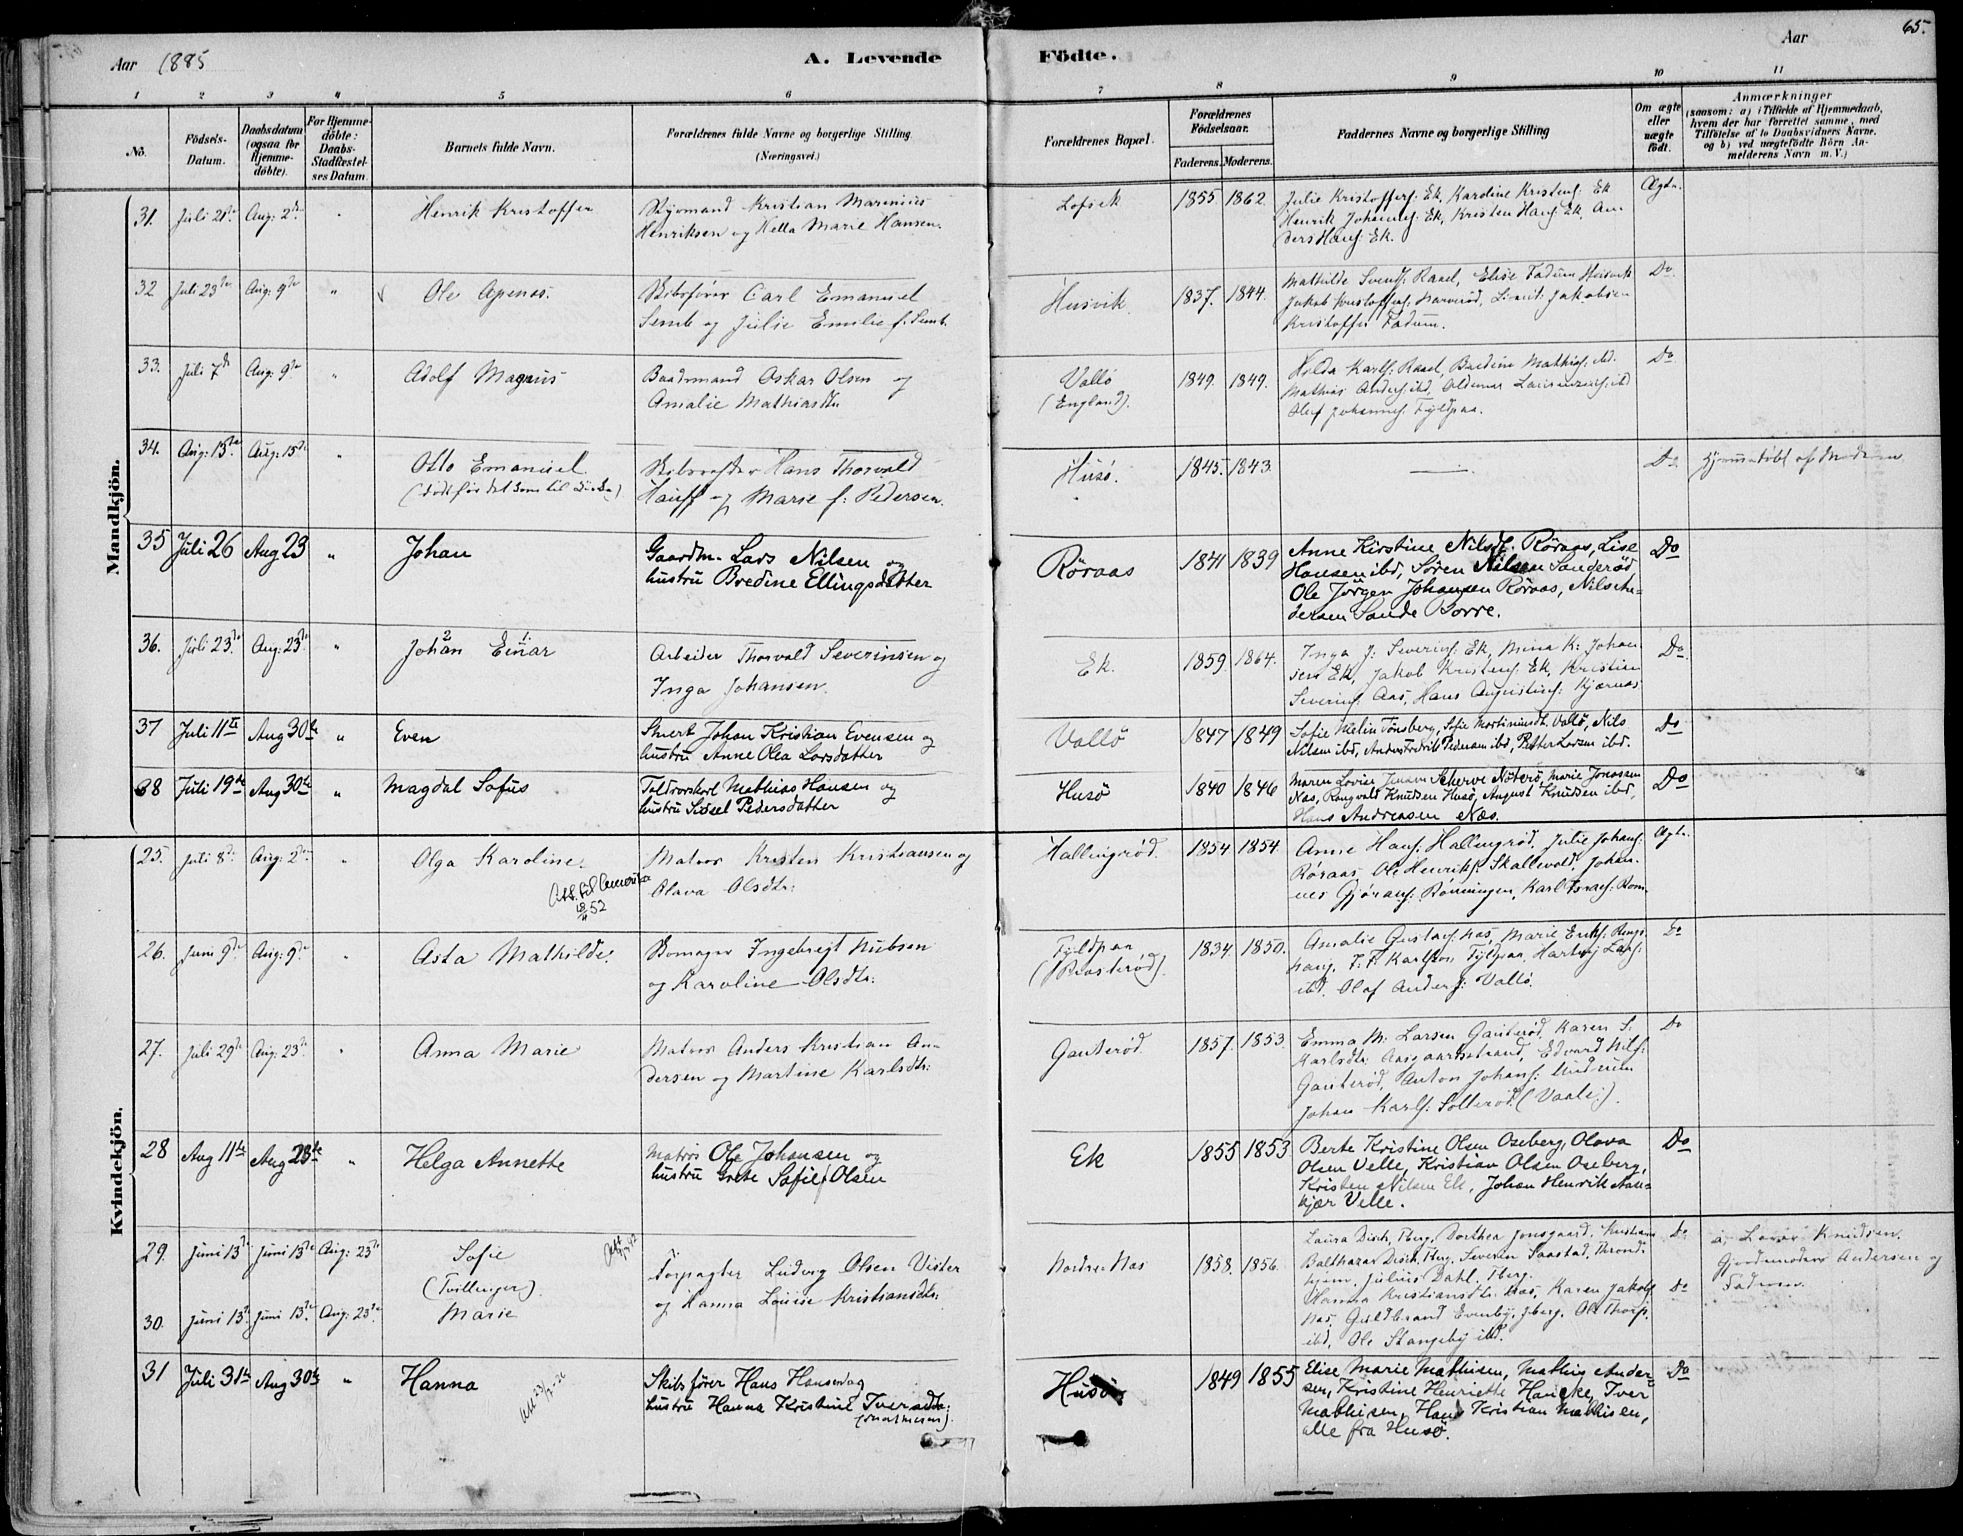 65.
Aar 1885
A. Levende Födte.
Aar
1 2 3 4 5 6 7 8 9 10 11
No.
Födsels-Datum.
Daabsdatum (ogsaa for Hjemmedöbte).
For Hjemmedöbte: Daabs-Stadfæstelses Datum.
Barnets fulde Navn.
Forældrenes fulde Navne og borgerlige Stilling
(Næringsvei.)
Forældrenes Bopæl.
Forældrenes Födselsaar.
Faderens. Moderens.
Faddernes Navne og borgerlige Stilling
Om ægte eller uægte födt.
Anmærkninger
(saasom: a) i Tilfælde af Hjemmedaab, hvem der har forrettet samme, med Tilföielse af to Daabsvidners Navne. og b) ved uægtefödte Börn Anmelderens Navn m. V.)
Mandkjön.
31. Juli 21de Aug: 2de " Henrik Kristoffer
Kristian Marinius
Henriksen og Marie Hansen.
1855 1862
Julie Kristoffers: Ek, Karoline Kristens: Ek
Henrik Johannes: Ek, Kristen Hans: Ek, An-
ders Hans: Ek.
Ægte.
32 Juli 23de Aug: 9de " Ole Apenæs.
Skibsfører Carl Emanuel
Semb og Julie Emilie f. Semb.
Husvik 1837. 1844.
Mathilde Svends: Raael, Elise Fadum Husvik
Jakob Kristoffers: Jakobsen
Kristoffer Fadum.
Do
33. Juli 7de Aug: 9de " Adolf Magnus
Baadsmand Oskar Olsen og
Amalie Mathiasdtr
Vallö
(England).
1849. 1849.
Hilda Karls: Raael, Bredine Mathias: ibd.
Mathias Anders: ibd, ibd
Oluf Johannes: Fyldpaa.
Do
34. Aug: 13de Aug: 15de " Otto Emanuel
(død før det kom til Kirke)
Hans Thorvald
Hauff og Marie f: Pedersen.
Husö. 1845. 1843.
Do. Hjemmedöbt af Moderen
35 Juli 26 Aug 23 " Johan
Gaardm. Lars Nilsen og
hustru Bredine Ellingsdatter
Röraas 1841 1839
Anne Kirstine Nilsdt. Röraas, Lise
Hansen ibd, Sören Nilsen Sanderöd
Ole Jörgen Johansen Röraas, Nils An-
dersen Sande Borre.
Do
36. Juli 23de Aug: 23de " Johan 2 Einar 1.
Arbeider Thorvald Severinsen og
Inga Johansen.
Ek. 1859. 1864.
Inga J: Severins: Ek, Mina K: Johan
sen Ek, Jakob Kristens: Ek, Kristian
Severins: Aas, Hans Augustins: Kjærnæs
Do.
37 Juli 11te Aug 30te " Even
Johan Kristian Evensen og
hustru Anne Olea Larsdatter
Vallö 1847 1849
Sofie Melin Tönsberg, Sofie Martiniusdt. Vallö, Nils
Nilsen ibd, Anders Fredrik Pedersen ibd, Petter Larsen ibd.
Do
38 Juli 19de Aug 30te " Magdal Sofus
Toldrorskarl Mathias Hansen og
hustru Sidsel Pedersdatter
Husö 1840 1846
Maren Lovise Jensen Scherve Nöterö, Marie Jonassen
Næs, Rangvald Knudsen Husö, August Knudsen ibd,
Hans Andreasen Næs.
Do
Kvindekjön.
25. Juli 8de Aug: 2de " Olga Karoline.
Att. til Amerika
18/11 52
Matros Kristen Kristiansen og
Olava Olsdtr:
Hallingröd 1854 1854.
Anne Hans: Hallingröd, Julie Johans:
Röraas, Ole Henriks: Skallevold, Johan-
nes Gjörans: Rönningen, Karl Rom.
Ægte.
26. Juni 9de Aug: 9de " Asta Mathilde.
Skomager Ingebregt Nubsen
og Karoline Olsdtr:
Fyldpaa
1834. 1850.
Amalie Gustavs: Næs, Marie Eriks: Rings
haug, Karlsson Fyldpaa, Hartvig Lars:
ibd, Olaf Anders: Vallö.
Do
27. Juli 29de Aug: 23de " Anna Marie
Matros Anders Kristian An-
dersen og Martine Karlsdtr:
Gauteröd 1857. 1853.
Emma M. Larsen Gauteröd, Karen S.
Karlsdtr. Aasgaardstrand, Edvard Nils:
Gauteröd, Anton Johans:
Johan Karls: Solleröd (Vaale).
Do
28 Aug 11te Aug 23de " Helga Annette
Matros Ole Johansen og
hustru Grete Sofie Olsen
Ek 1855 1853
Berte Kristine Olsen Oseberg, Olava
Olsen Velle, Kristian Olsen Oseberg,
Kristen Nilsen Ek, Johan Henrik Nau-
kjær Velle.
Do
29. Juni 13de Juni 13de Aug: 23de Sofie
(Tvillinger).
30. Juni 13de Juni 13de Aug: 23de Marie
Forpagter Ludvig Olsen Vister
og Hanna Louise Kristiansdtr:
Nordre Næs 1858. 1856.
Laura Disch, Tberg, Dorthea Jonsgaard, Kristiania
Balthazar Disch, Tberg, Severin Saastad, Thrond-
hjem, Julius Dahl, Tberg.
Hanna Kristiansdtr. Næs, Karen Jakobs:
Næs, Guldbrand Evenby, Tberg, Ole Thorp,
ibd, Ole Stangeby ibd.
Do
Do
a, Knudsen,
Gjordemoder Andersen og
Faderen.
31 Juli 31te Aug 30te " Hanna
Skibsfører Hans Hansen og
hustru Hanna Kristine Iversdtr.
Husö 1849 1855
Elise Marie Mathisen, Mathis Ander-
sen, Kristine Henriette Hancke, Iver
Mathisen, Hans Kristian Mathisen,
alle fra Husö.
Do